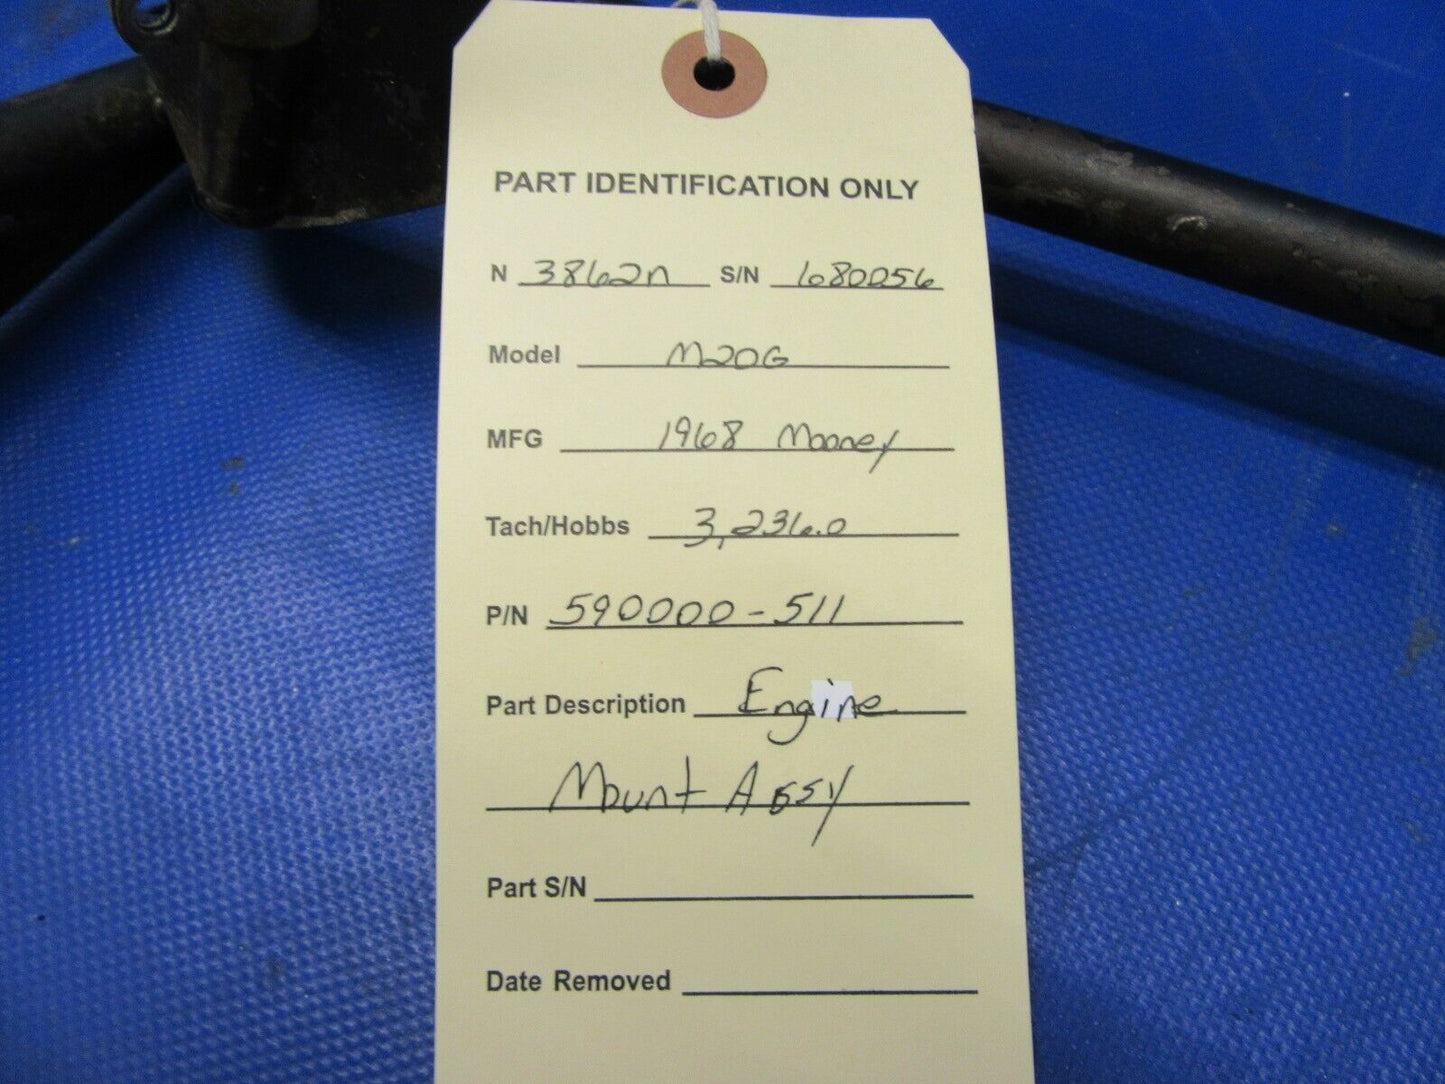 PART IDENTIFICATION ONLY
N 3862N S/N 680056
Model M20G
MFG 1968 Mooney
Tach/Hobbs 3,236.0
P/N 590000-511
Part Description Engine
Mount Assy
Part S/N
Date Removed